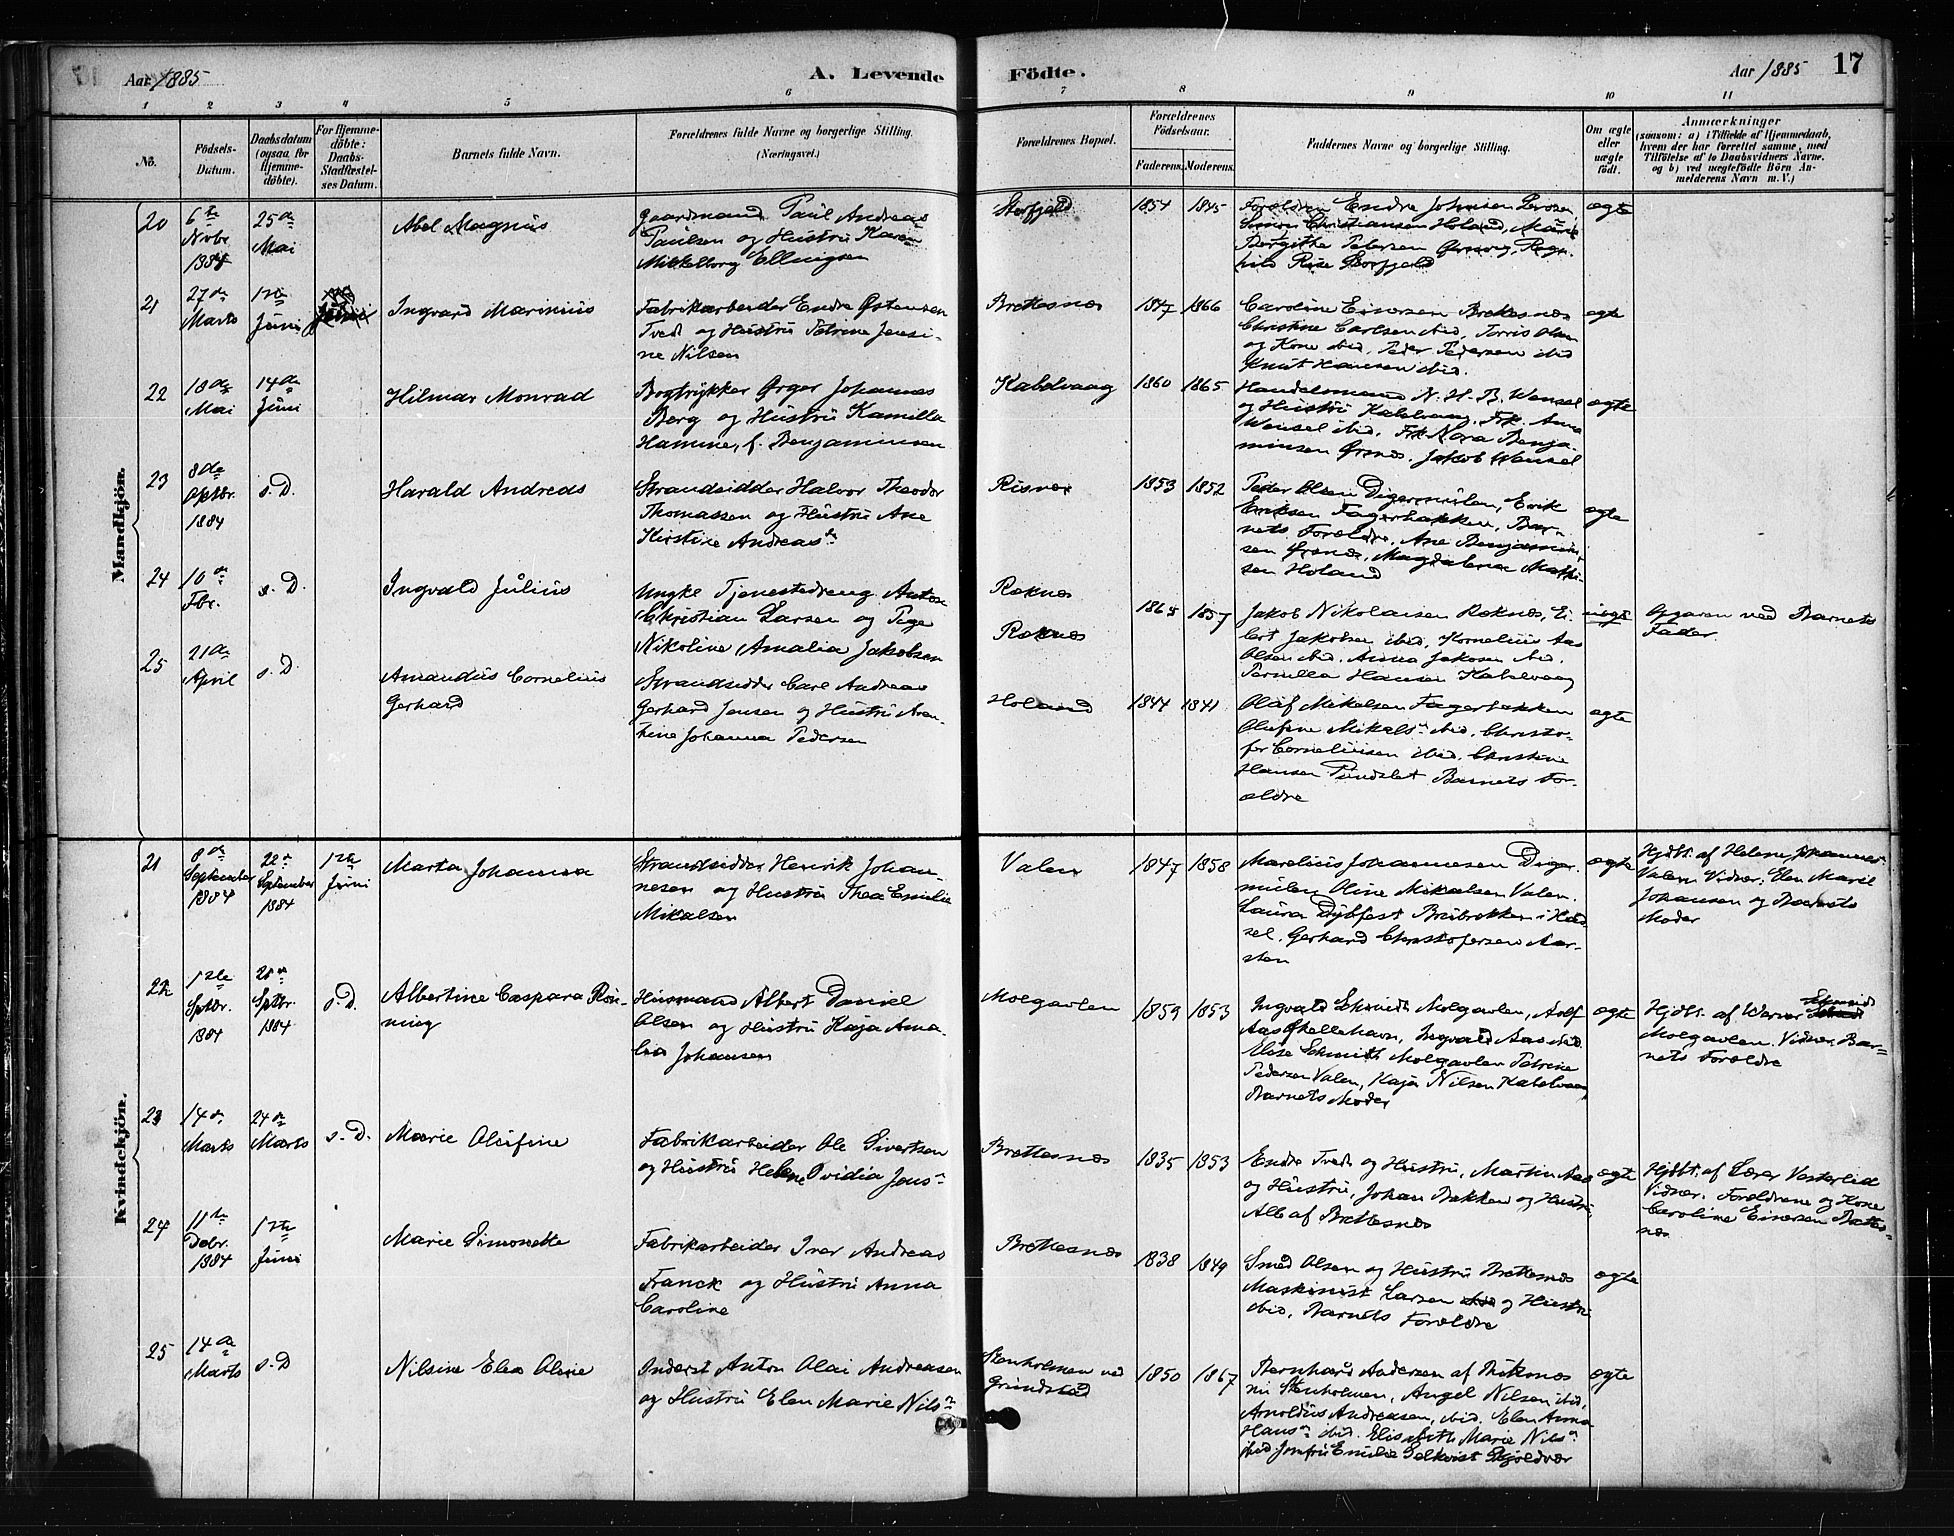 Aar 1885
A. Levende Födte.
Aar 1885 17
1 2 3 4 5 6 7 8 9 10 11
No.
Fødsels-Datum.
Daabsdatum (ogsaa for hjemme-döbte).
For Hjemme-döbte: Daabs-Stadfæstel-ses Datum.
Barnets fulde Navn.
Forældrenes fulde Navne og borgerlige Stilling. (Næringsvei.)
Forældrenes Bopæl.
Forældrenes Födselsaar.
Faderens. Moderens.
Faddernes Navne og borgerlige Stilling.
Om ægte eller uægte födt.
Anmærkninger
(saasom: a) i Tilfælde af Hjemmedaab, hvem der har forrettet samme, med Tilföielse af to Daabsvidners Navne, og b) ved uægtefödte Börn An-melderens Navn m. V.)
Mandkjön.
20 6te Novbr. 1884 25de Mai
Abel Magnus
Gaardmand Paul Andreas
Paulsen og Hustru Karen
Mikkelborg Ellingsen
Storfjeld 1854 1845
Forældrene Endre Johnsen
Simon Christiansen Holand, Marie
Bergithe Petersen Ørsnes, Ragn-
hild Rise Storfjeld
ægte
21 27de Marts 1ste Juni
Ingvard Marinius
Fabrikarbeider Endre Østensen
Tvedt og Hustru Petrine Jensi-
ne Nilsen
Brettesnæs 1847 1866
Caroline Eivarsen Brettesnæs
Christine Carlsen ibid, Torris Olsen
og Kone ibid, Peder Pedersen ibid
Knut Hansen ibid.
ægte
22 18de Mai 14de Juni
Hilmar Monrad
Bogtrykker Ørger Johannes
Berg og Hustru Kamilla
Hamine, f. Benjaminsen
Kabelvaag 1860 1865
Handelsmand N. H. B. Wensel
og Hustru Kabelvaag, Frk. Anna
Wensel ibid, Frk Nora Benja-
minsen Ørsnes, Jakob Wensel
ægte
23 8de 1884 s. D.
Harald Andreas
Strandsidder Halvor Theodor
Thomassen og Hustru Ane
Kirstine Andreasdr
Risvær 1853 1852
Peder Olsen Digermulen, Erik
Eriksen Fagerbakken, Bar-
nets Forældre, Ane Benjamin-
sen Ørsnes, Magdalena Mathi-
sen Holand
ægte
24 10de Fbr. s. D.
Ingvald Julius
Ungkl Tjenestedreng Anton
Christian Larsen og Pige
Nikoline Amalia Jakobsen
Roknæs
Roknæs
1865 1857
Jakob Nikolaisen Roknæs, Ei-
lert Jakobsen ibid, Kornelius Aas
Olsen ibid, Anna Jakosen ibid.
Pernilla Hansen Kabelvaag
uægte
Opgaven ved Barnets
Fader.
25 21de April s. D.
Amandus Cornelius
Gerhard
Strandsidder Carl Andreas
Gerhard Jensen og Hustru Aren-
tine Johanna Pedersen
Holand 1844 1841
Olaf Mikelsen Fagerbakken
Olufine Mikelsn ibid, Christo-
fer Corneliusen ibid, Christine
Hansen Pundslet Barnets For-
ældre
ægte
Kvindekjön.
21 8de September 1884 22de September 1884 1ste Juni
Marta Johanna
Strandsidder Henrik Johan-
nesen og Hustru Thea Emilie
Mikalsen
Valen 1847 1858
Marelius Johannesen Diger-
mulen Oline Mikalsen Valen.
Laura Dybfest Breibrekken i Had-
sel. Gerhard Christofersen Aar-
sten
ægte
Hjdbt. af Helene Johannes
Valen Vidner: Elen Marie
Johansen og Barnets
Moder
22 12te Sptbr. 1884 28de Sptbr. 1884 s. D.
Albertine Caspara Røn-
ning
Husmand Albert Daniel
Olsen og Hustru Kaja Ama-
lia Johansen
Molgavlen 1859 1853
Ingvald Schmidt Molgavlen, Adolf
Aas Skellehavn, Ingvald Aas ibid.
Elise Schmidt Molgavlen Petrine
Pedersen Valen, Kaja Nilsen Kabelvaag,
Barnets Moder
ægte
Hjdbt. af Werner Schmidt
Molgavlen. Vidner. Bar-
nets Forældre
23 14de Marts 24de Marts s. D.
Marie Olufine
Fabrikarbeider Ole Sivertsen
og Hustru Helene Ovidia Jensn
Brettesnæs 1835 1853
Endre Tvedt og Hustru, Martin Aas
og Hustru, Johan Bakken og Hustru,
Alle af Brettesnæs
ægte
Hjdbt. af Lærer Vesterlid
Vidner: Forældrene og Kone
Caroline Eivarsen Brettes-
næs
24 11te Debr. 1884 1ste Juni
Marie Simonette
Fabrikarbeider Iver Andreas
Franck og Hustru Anna
Caroline
Brettesnæs 1838 1849
Smed Olsen og Hustru Brettesnæs
Maskinist Larsen og Hustru
ibid, Barnets Forældre
ægte
25 14de Marts s. D
Nilsine Elea Oline
Inderst Anton Olai Andreasen
og Hustru Elen Marie Nilsn
Stenholmen ved
Grundstad
1850 1867
Bernhard Andersen af
nu Stenholmen, Angel Nilsen ibid,
Arnoldus Andreasen, ibid. Elen Anna
Hansn ibid. Elisabeth Marie Nilsn
ibid Jomfru Emilie Selkvist Skjoldvær
ægte